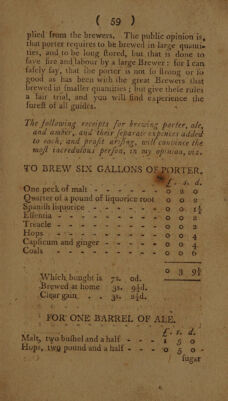 ( 59 )
plied from the brewers. The public opinion is,
that porter requires to be brewed in large quanti-
ties, and to be long stored, but that is done to
save fire and labour by a large Brewer: for I can
safely say, that the porter is not so strong or so
good as has been with the great Brewers that
brewed in smaller quantities; but give these rules
a fair trial, and you will find experience the
surest of all guides.
The following receipts for brewing porter, ale,
and amber, and their separate expences added
to each, and profit arising, will convince the
most incredulous person, in my opinion, viz.
TO BREW SIX GALLONS OF PORTER.
£. s. d.
One peck of malt - - - - - 0 2 0
Quarter of a pound of liquorice root 0 0 2
Spanish liquorice - - - - - 0 0 1½
Essentia - - - - - - - 0 0 2
Treacle - - - - - - - 0 0 2
Hops - - - - - - - 0 0 4
Capsicum and ginger - - - - 0 0 4
Coals - - - - - - - 0 0 6
0 3 9½
Which bought is 7s. 0d.
Brewed at home 3s. 9½d.
Clear gain - - - 3s. 2½d.
FOR ONE BARREL OF ALE.
£. s. d.
Malt, two bushel and a half - - - 1 5 0
Hops, two pound and a half - - - 0 5 0
sugar